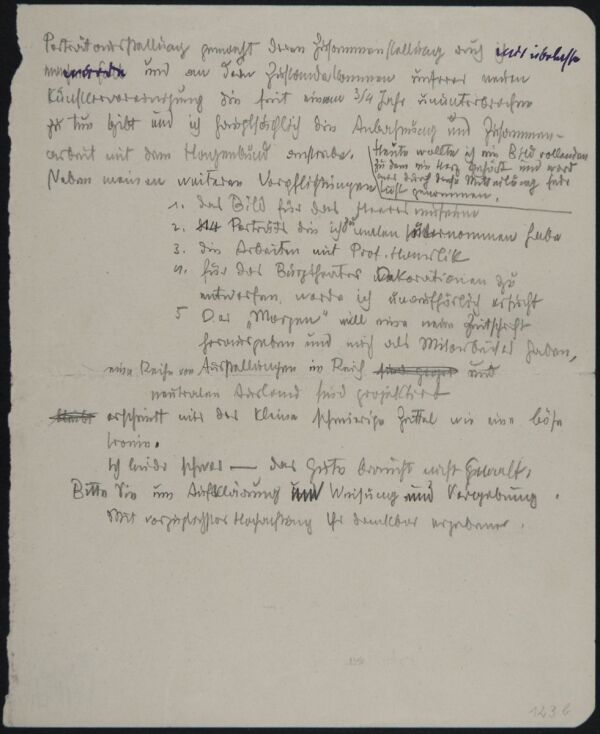 Porträtausstellung gemacht deren Zusammenstellung auch mir überlassen
wurde und an dem Zustandekommen unserer neuen
Künstlervereinigung die seit einem 3/4 Jahr ununterbrochen
zu tun gibt und ich hauptsächlich die Anbahnung und Zusammen-
arbeit mit dem Hagenbund anstrebe.
Heute wollte ich ein Bild vollenden
zu dem ein Herz gehört und ward
durch diese Mitteilung jede
Lust genommen.
Neben meinen weiteren Verpflichtungen
1. das Bild für das Heeresmuseum
2. 14 Porträts die ich übernommen habe
3. die Arbeiten mit Prof. Hanslik
4. für das Burgtheater Dekorationen zu
entwerfen, werde ich unaufhörlich ersucht
5 Der „Morgen" will eine neue Zeitschrift
herausgeben und mich als Mitarbeiter haben,
eine Reihe von Ausstellungen im Reich und
neutralen Ausland sind projektiert
erscheint mir der kleine schmierige Zettel wie eine böse
Ironie.
Ich leide schwer — das Gute braucht nicht Gewalt.
Bitte Sie um Aufklärung und Weisung und Vergebung.
Mit vorzüglichster Hochachtung Ihr dankbar ergebener.
123 b